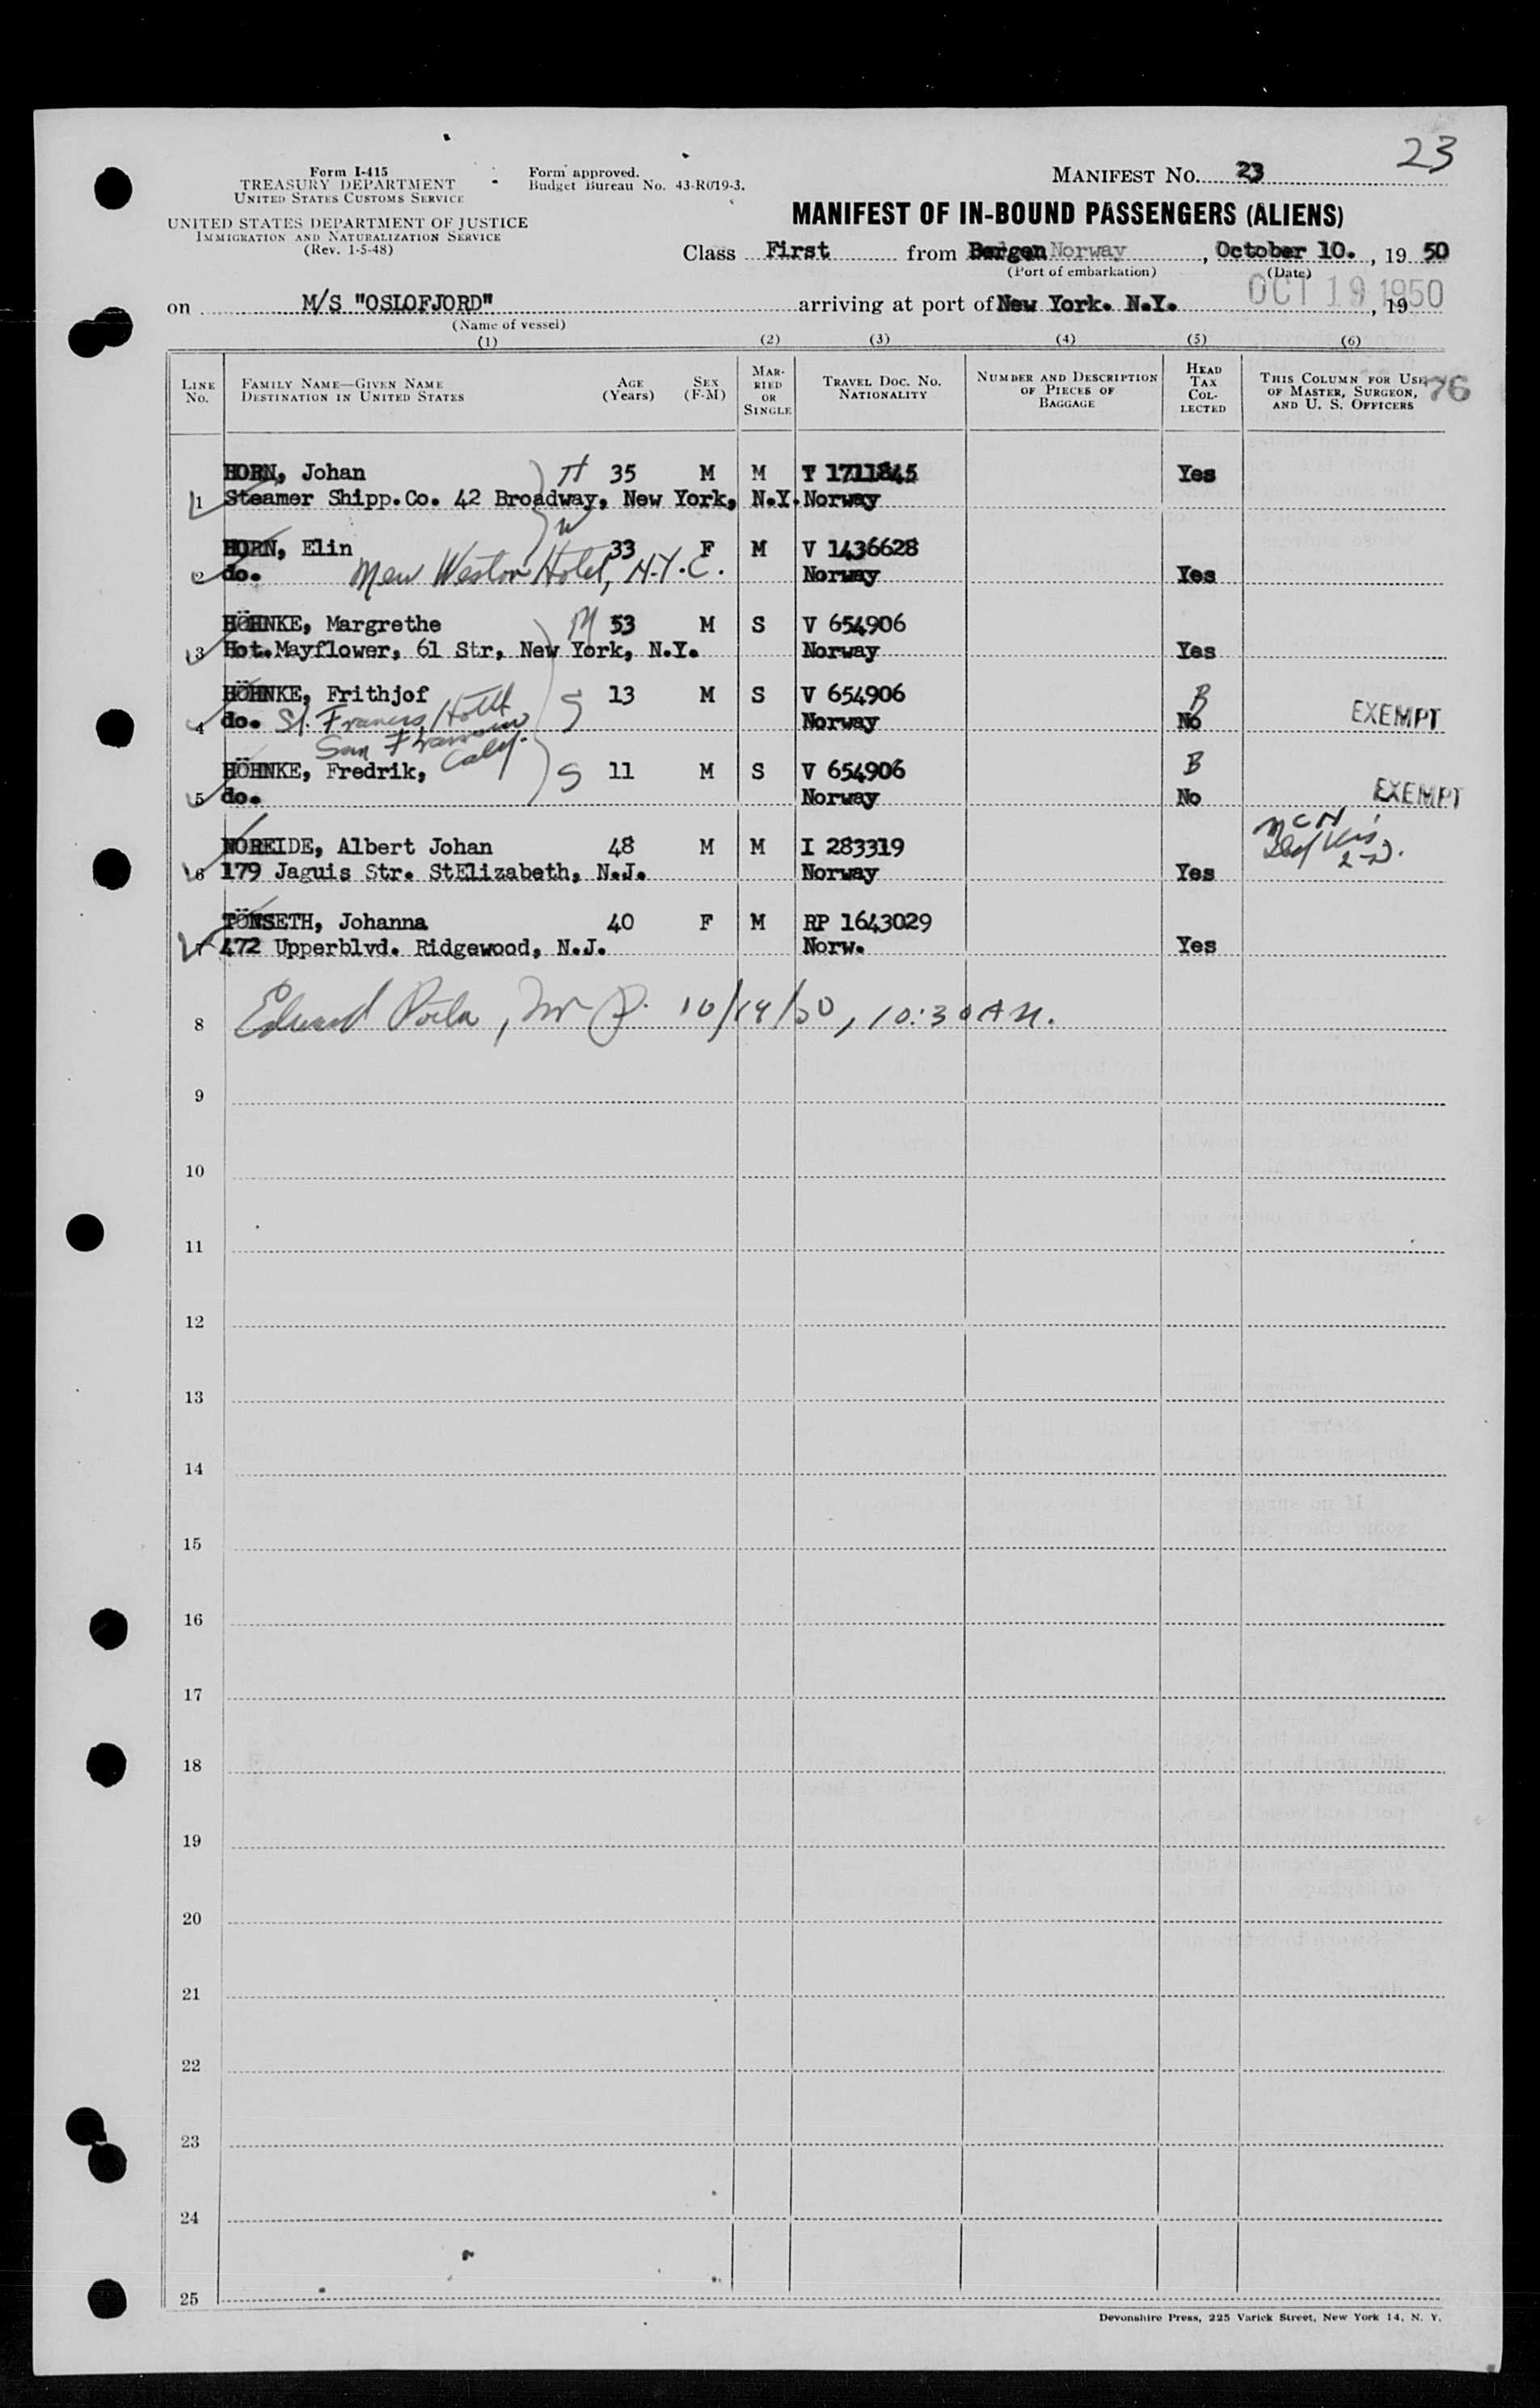 23
Form I-415
TREASURY DEPARTMENT
UNITED STATES CUSTOMS SERVICE
UNITED STATES DEPARTMENT OF JUSTICE
IMMIGRATION AND NATURALIZATION SERVICE
(Rev. 1-5-48)
Form approved.
Budget Bureau No. 43-R019-3.
MANIFEST NO. 23
MANIFEST OF IN-BOUND PASSENGERS (ALIENS)
Class First from Bergen Norway, October 10., 19 50
(Port of embarkation) (Date)
OCT 19 1950
on M/S "OSLOFJORD" arriving at port of New York. N.Y. , 19
(Name of vessel)
(1) (2) (3) (4) (5) (6)
LINE No. FAMILY NAME—GIVEN NAME DESTINATION IN UNITED STATES AGE (Years) SEX (F-M) MARRIED OR SINGLE TRAVEL DOC. NO. NATIONALITY NUMBER AND DESCRIPTION OF PIECES OF BAGGAGE HEAD TAX COLLECTED THIS COLUMN FOR USE OF MASTER, SURGEON, AND U. S. OFFICERS 76
HORN, Johan H 35 M M T 1711845 Yes
1 Steamer Shipp.Co. 42 Broadway, New York, N.Y. Norway
W
HORN, Elin 33 F M V 1436628
2 do. New Weston Hotel, N.Y.C. Norway Yes
HÖHNKE, Margrethe M 53 M S V 654906
3 Hot.Mayflower, 61 Str, New York, N.Y. Norway Yes
HÖHNKE, Frithjof S 13 M S V 654906 B
4 do. St. Francis Hotel Norway No EXEMPT
San Francisco
Calif.
HÖHNKE, Fredrik, S 11 M S V 654906 B
5 do. Norway No EXEMPT
NOREIDE, Albert Johan 48 M M I 283319
6 179 Jaguis Str. StElizabeth, N.J. Norway Yes
TÖNSETH, Johanna 40 F M RP 1643029
7 472 Upperblvd. Ridgewood, N.J. Norw. Yes
8 10/19/50, 10:30 AM.
9
10
11
12
13
14
15
16
17
18
19
20
21
22
23
24
25
Devonshire Press, 225 Varick Street, New York 14, N. Y.